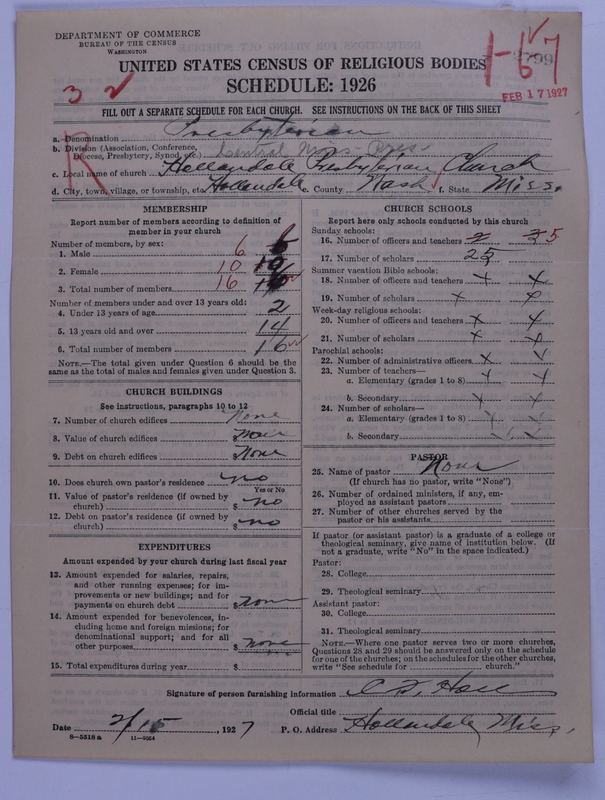 DEPARTMENT OF COMMERCE
BUREAU OF THE CENSUS
WASHINGTON
UNITED STATES CENSUS OF RELIGIOUS BODIES
SCHEDULE: 1926
3 2
1-67
FEB 17 1927
FILL OUT A SEPARATE SCHEDULE FOR EACH CHURCH. SEE INSTRUCTIONS ON THE BACK OF THIS SHEET
R
a. Denomination Presbyterian
b. Division (Association, Conference, Diocese, Presbytery, Synod, etc.) Central Miss. Pres.
c. Local name of church Hollandale Presbyterian Church
d. City, town, village, or township, etc. Hollandale e. County Wash f. State Miss.
MEMBERSHIP
Report number of members according to definition of
member in your church
Number of members, by sex:
1. Male 6 6
2. Female 10 10
3. Total number of members 16 16
Number of members under and over 13 years old:
4. Under 13 years of age 2
5. 13 years old and over 14
6. Total number of members 16
NOTE.—The total given under Question 6 should be the
same as the total of males and females given under Question 3.
CHURCH BUILDINGS
See instructions, paragraphs 10 to 12
7. Number of church edifices None
8. Value of church edifices $ None
9. Debt on church edifices $ None
10. Does church own pastor's residence no
Yes or No
11. Value of pastor's residence (if owned by
church) $ no
12. Debt on pastor's residence (if owned by
church) $ no
EXPENDITURES
Amount expended by your church during last fiscal year
13. Amount expended for salaries, repairs,
and other running expenses; for im-
provements or new buildings; and for
payments on church debt $ none
14. Amount expended for benevolences, in-
cluding home and foreign missions; for
denominational support; and for all
other purposes $ none
15. Total expenditures during year $
CHURCH SCHOOLS
Report here only schools conducted by this church
Sunday schools:
16. Number of officers and teachers 5
17. Number of scholars 25
Summer vacation Bible schools:
18. Number of officers and teachers x x
19. Number of scholars x x
Week-day religious schools:
20. Number of officers and teachers x x
21. Number of scholars x x
Parochial schools:
22. Number of administrative officers x x
23. Number of teachers—
a. Elementary (grades 1 to 8) x x
b. Secondary x x
24. Number of scholars—
a. Elementary (grades 1 to 8) x x
b. Secondary x x
PASTOR
25. Name of pastor None
(If church has no pastor, write "None")
26. Number of ordained ministers, if any, em-
ployed as assistant pastors
27. Number of other churches served by the
pastor or his assistants
If pastor (or assistant pastor) is a graduate of a college or
theological seminary, give name of institution below. (If
not a graduate, write "No" in the space indicated.)
Pastor:
28. College
29. Theological seminary
Assistant pastor:
30. College
31. Theological seminary
NOTE.—Where one pastor serves two or more churches,
Questions 28 and 29 should be answered only on the schedule
for one of the churches; on the schedules for the other churches,
write "See schedule for church."
Signature of person furnishing information
Official title
Date 2/15, 1927 P. O. Address Hollandale Miss.
8-5518 a 11-9054